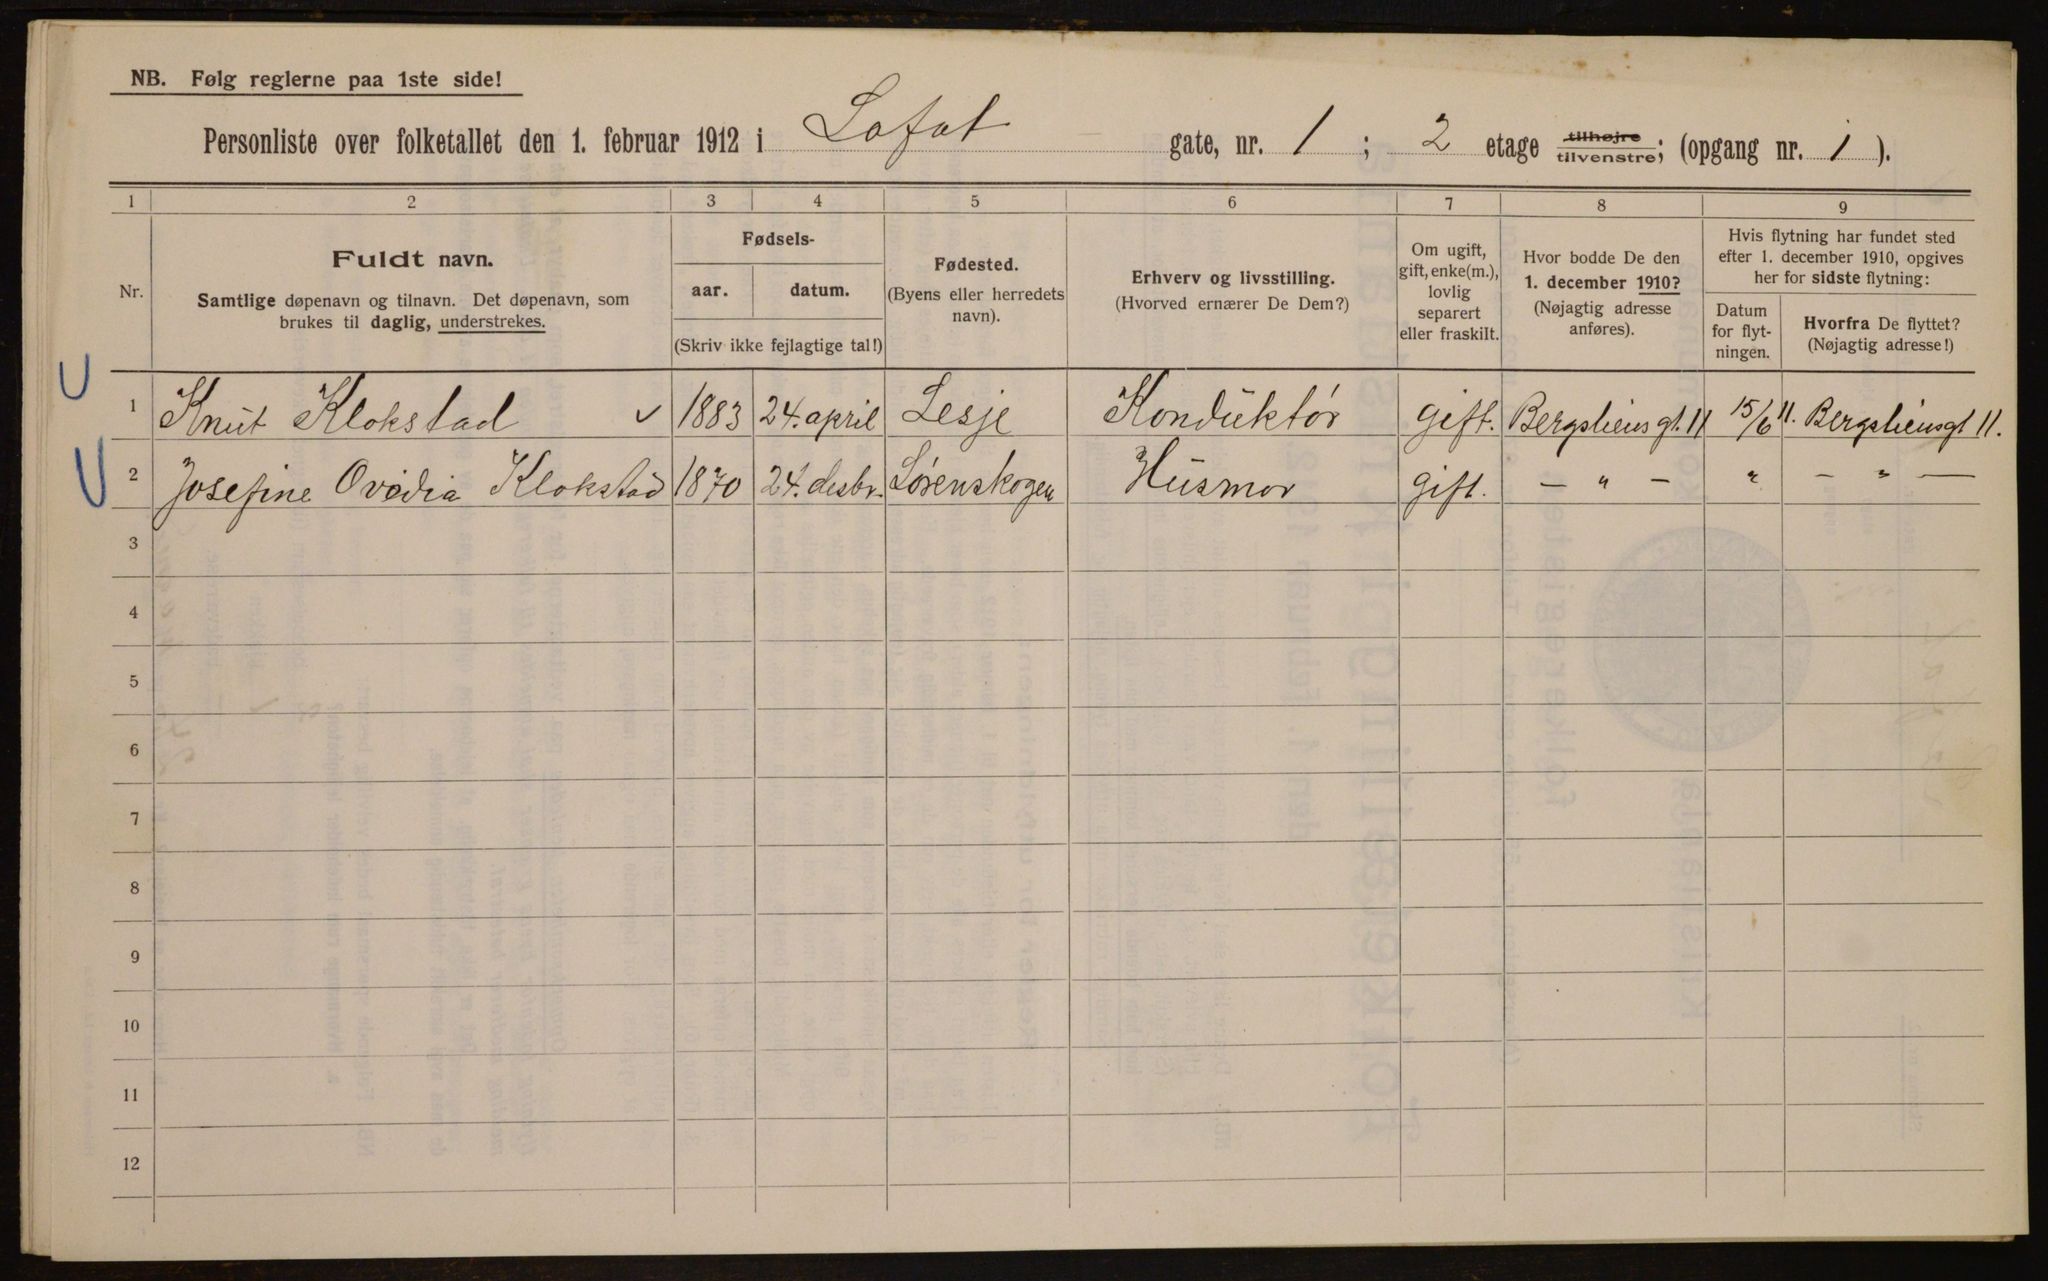 NB. Følg reglerne paa 1ste side!
Personliste over folketallet den 1. februar 1912 i Lofot gate, nr. 1 ; 2 etage tilhøjre tilvenstre; (opgang nr. 1 ).
1 2 3 4 5 6 7 8 9
Nr.
Fuldt navn.
Samtlige døpenavn og tilnavn. Det døpenavn, som
brukes til daglig, understrekes.
Fødsels-
aar. datum.
(Skriv ikke fejlagtige tal!)
Fødested.
(Byens eller herredets
navn).
Erhverv og livsstilling.
(Hvorved ernærer De Dem?)
Om ugift,
gift, enke(m.),
lovlig
separert
eller fraskilt.
Hvor bodde De den
1. december 1910?
(Nøjagtig adresse
anføres).
Hvis flytning har fundet sted
efter 1. december 1910, opgives
her for sidste flytning:
Datum
for flyt-
ningen.
Hvorfra De flyttet?
(Nøjagtig adresse!)
1 Knut Klokstad 1883 24. april Lesje Konduktør gift. Bergsliens gt. 11 15/6 11. Bergsliensgt 11.
2 Josefine Ovidia Klokstad 1870 24. desbr. Lørenskogen Husmor gift. — " — " — " —
3
4
5
6
7
8
9
10
11
12